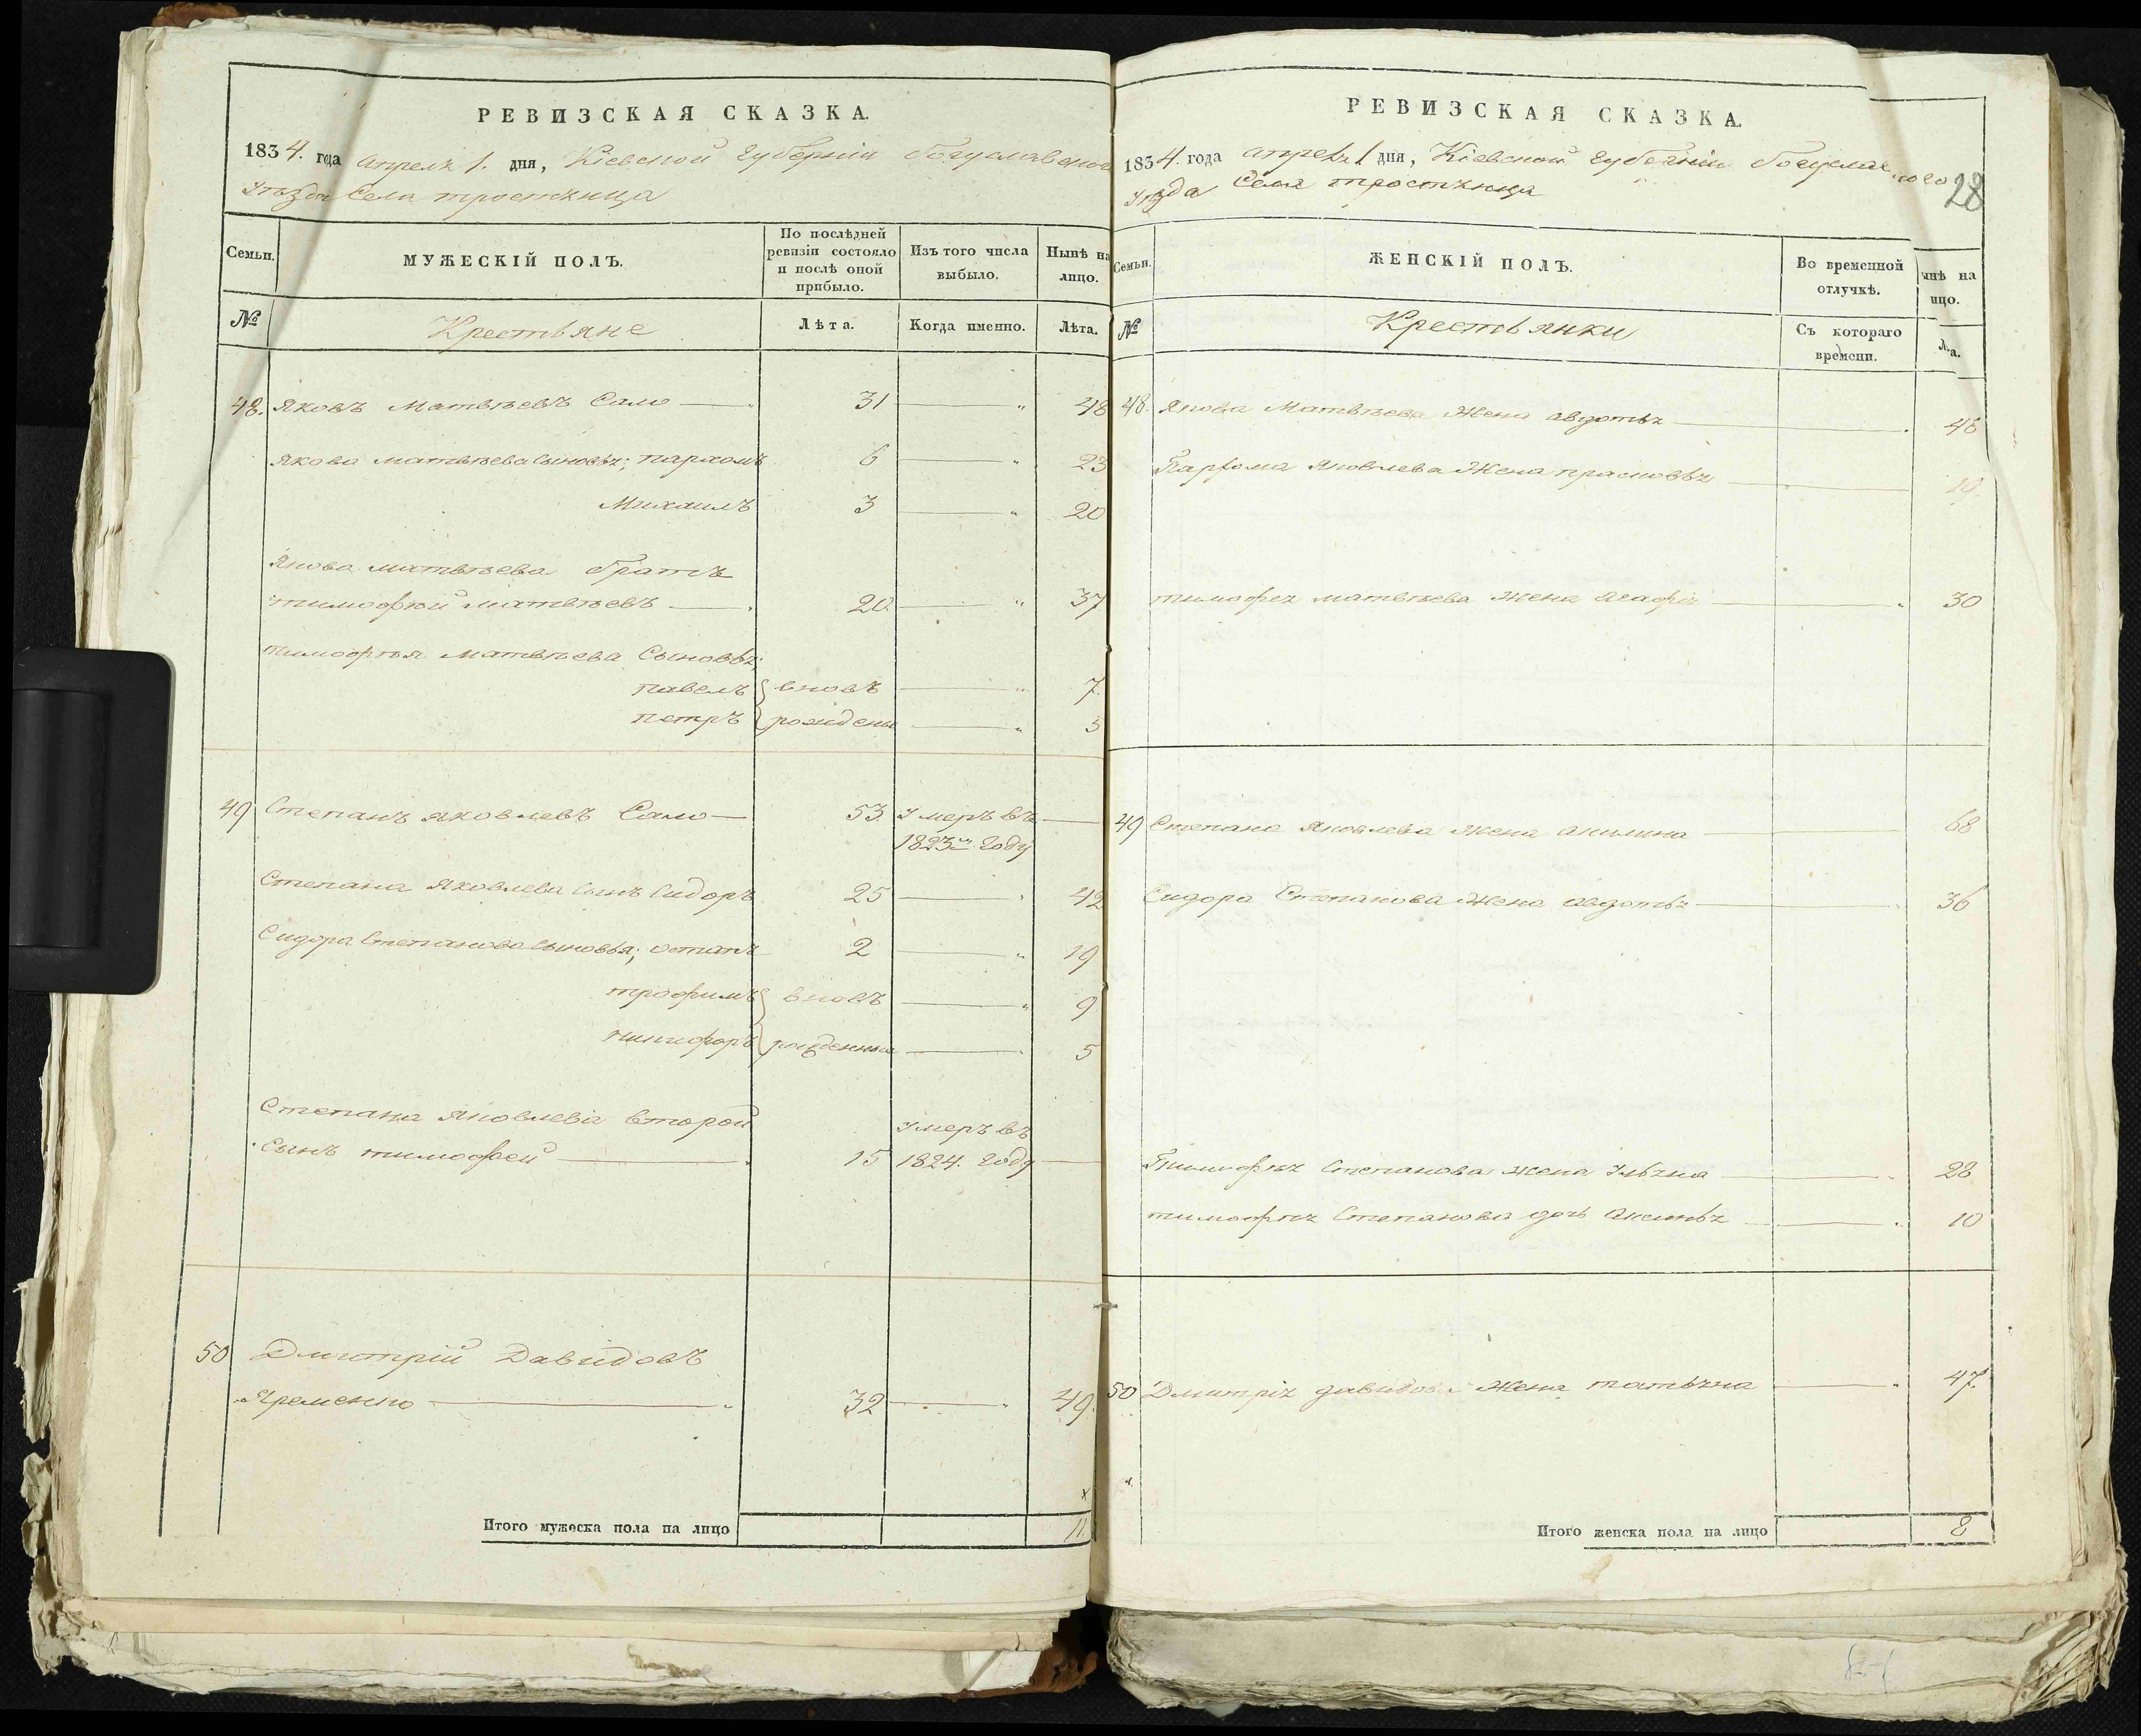 РЕВИЗСКАЯ СКАЗКА.
1834. года апреля 1. дня, Кіевской губерніи Богуславского
уѣзда Села тростянца
Семьи. МУЖЕСКІЙ ПОЛЪ. По послѣдней ревизіи состояло и послѣ оной прибыло. Изъ того числа выбыло. Нынѣ на лицо.
№ Крестьяне Лѣта. Когда именно. Лѣта.
48. Яковъ Матвѣевъ Сало 31 48
Якова матвѣева сыновья; пархомъ 6 23
Михаилъ 3 20
Якова матвѣева братъ
тимофей матвѣевъ 20 37
тимофѣя матвѣева Сыновья;
павелъ вновь 7
петръ рождены 5
49 Степанъ яковлевъ Сало 53 умеръ въ
1823м году
Степана яковлева сынъ Сидоръ 25 42
Сидора Степанова сыновья; остапъ 2 19
трофимъ вновь 9
никифоръ рожденные 5
Степана яковлева второй умеръ въ
Сынъ тимофей 15 1824. году
50 Дмитрій Давидовъ
Яременко 32 49.
Итого мужеска пола на лицо 11.
РЕВИЗСКАЯ СКАЗКА.
1834. года апреля 1 дня, Кіевской губерніи Богуславского
уѣзда Села тростянца
28
Семьи. ЖЕНСКІЙ ПОЛЪ. Во временной отлучкѣ. ынѣ на ицо.
№ Крестьянки Съ котораго времени. Л а.
48. Якова Матвѣева Жена авдотья 46
Пархома яковлева Жена прасковья 19.
тимофея матвѣева жена агафія 30
49 Степана яковлева жена акилина 68
Сидора Степанова жена авдотья 36
Тимофѣя Степанова жена Ульяна 28
тимофѣя Степанова дочь аксинья 10
50 Дмитрія давидова Жена татьяна 47.
Итого женска пола на лицо 8